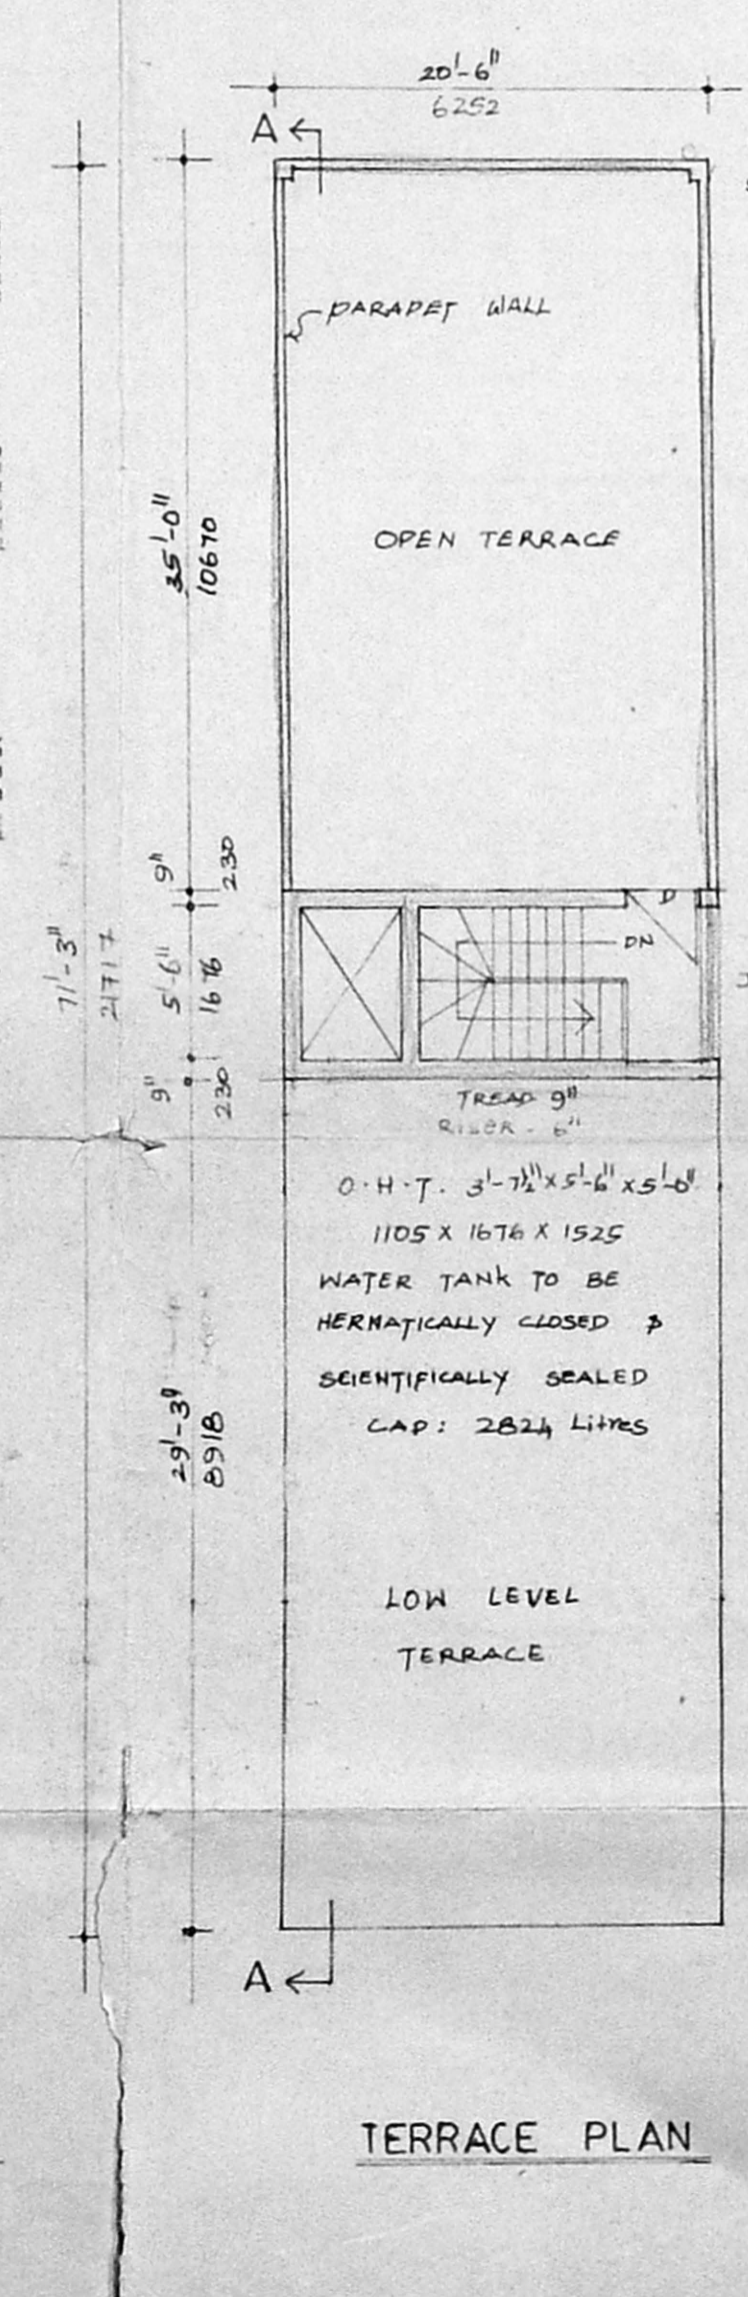 20'-6"
6252
A
PARAPET WALL
35'-0"
10670
OPEN TERRACE
9"
230
D
DN
71'-3"
21717
5'-6"
1676
9"
230
TREAD 9"
RISER - 6"
O.H.T. 3'-7½" x 5'-6" x 5'-0"
1105 X 1676 X 1525
WATER TANK TO BE
HERMATICALLY CLOSED &
SCIENTIFICALLY SEALED
CAP: 2824 Litres
29'-3"
8918
LOW LEVEL
TERRACE
A
TERRACE PLAN